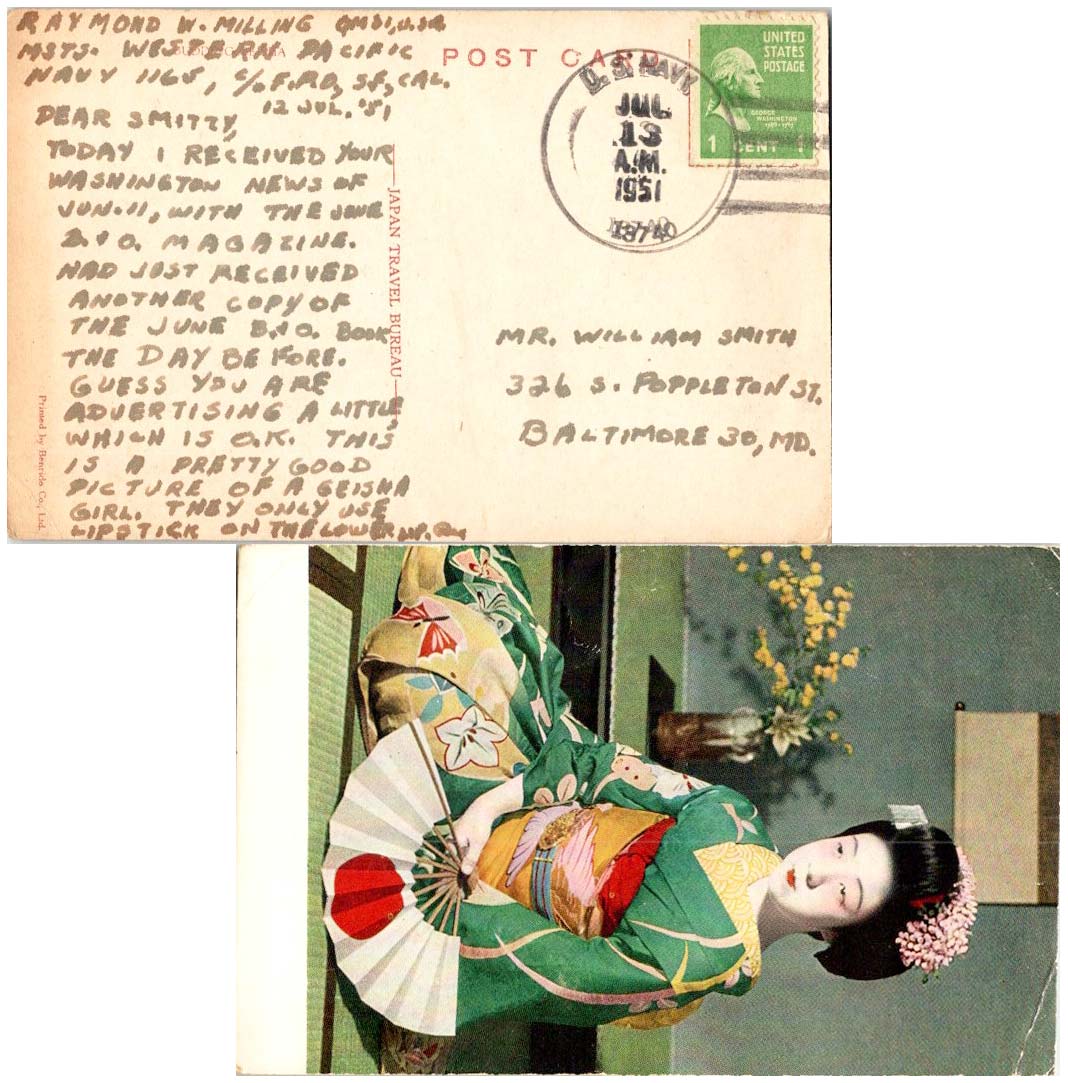 RAYMOND W. MILLING QM51, U.S.N.
MSTS. WESTERN PACIFIC
NAVY 1165, c/o F.P.O, S.F, CAL.
12 JUL. '51
DEAR SMITTY,
TODAY I RECEIVED YOUR
WASHINGTON NEWS OF
JUN.11, WITH THE JUNE
B.&O. MAGAZINE.
HAD JUST RECEIVED
ANOTHER COPY OF
THE JUNE B.&O. BOOK
THE DAY BEFORE.
GUESS YOU ARE
ADVERTISING A LITTLE,
WHICH IS O.K. THIS
IS A PRETTY GOOD
PICTURE OF A GEISHA
GIRL. THEY ONLY USE
LIPSTICK ON THE LOWER LIP.
Printed by Benrido Co., Ltd.
JAPAN TRAVEL BUREAU
POST CARD
U.S. NAVY
JUL
13
A.M.
1951
13740
UNITED
STATES
POSTAGE
GEORGE
WASHINGTON
1789-1797
1 CENT
MR. WILLIAM SMITH
326 S. POPPLETON ST.
BALTIMORE 30, MD.